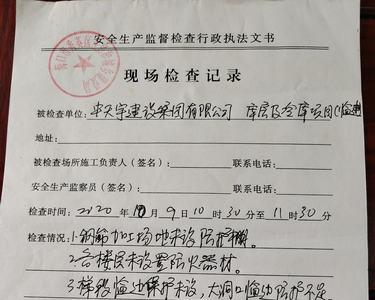 安全生产监督检查行政执法文书
现场检查记录
被检查单位：中天宇建设集团有限公司 库房及仓库项目(临建
地址：
被检查场所施工负责人（签名）： 联系电话：
安全生产监察员（签名）： 联系电话：
检查时间：2020 年 10 月 9 日 10 时 30 分至 11 时 30 分
检查情况：1.钢筋加工场地未设防护棚。
2.各楼层未设置防火器材。
3.梯段临边防护未设，大洞口临边防护不足